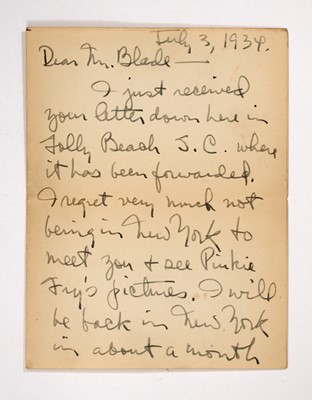 July 3, 1934.
Dear Mr. Blade —
I just received
your letter down here in
Folly Beach S. C. where
it has been forwarded.
I regret very much not
being in New York to
meet you + see Pinkie
Fry's pictures. I will
be back in New York
in about a month